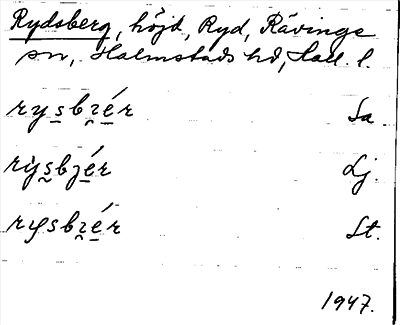 Rydsberg, höjd, Ryd, Rävinge
sn, Halmstads hd, Hall. l.
rysbzér Sa.
rẏsbzér Lj.
rysbzér St.
1947.